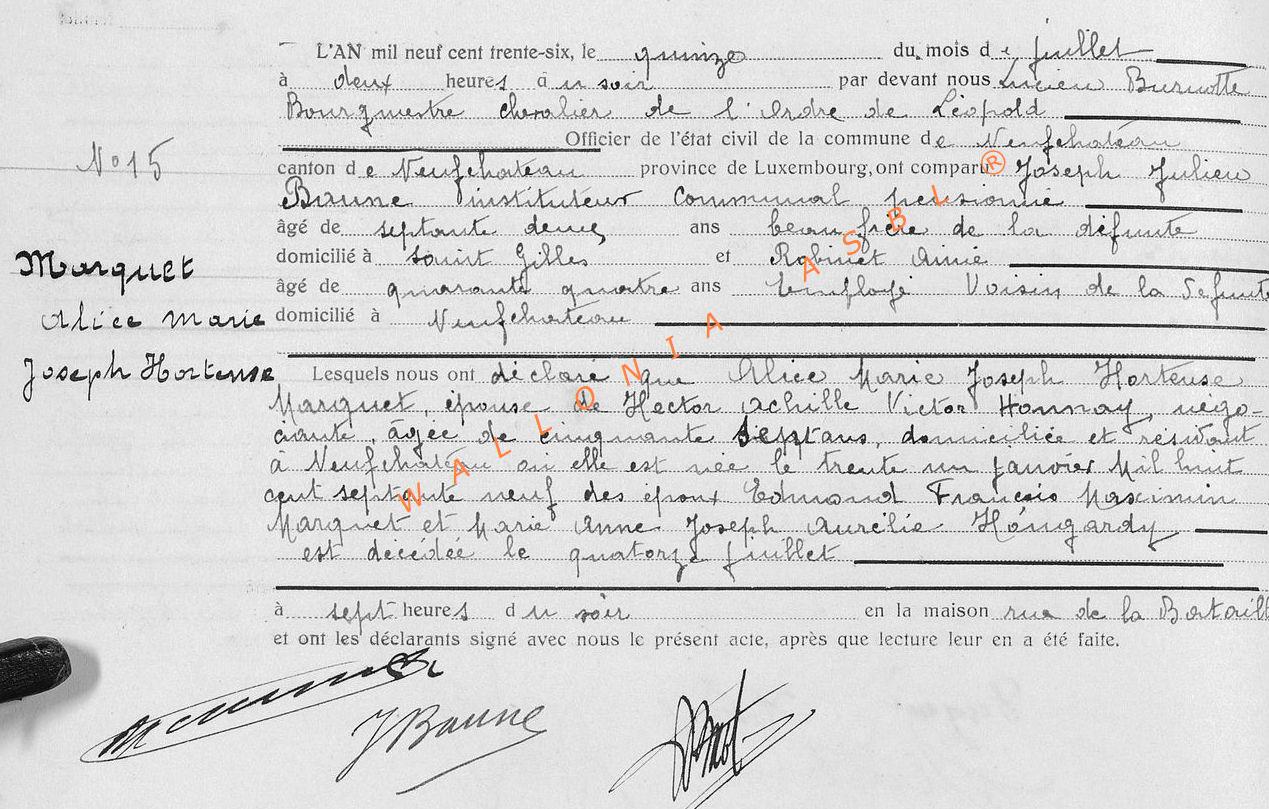 L'AN mil neuf cent trente-six, le quinze du mois de juillet
à deux heures du soir par devant nous Lucien Burnotte
Bourgmestre chevalier de l'Ordre de Léopold
Officier de l'état civil de la commune de Neufchateau
N° 15
canton de Neufchateau province de Luxembourg, ont comparu Joseph Julien
Baune instituteur communal pensionné
âgé de septante deux ans beau frère de la défunte
domicilié à Saint Gilles et Robinet Aimé
âgé de quarante quatre ans Employé Voisin de la défunte
domicilié à Neufchateau
Marquet
Alice Marie
Joseph Hortense
Lesquels nous ont déclaré que Alice Marie Joseph Hortense
Marquet, épouse de Hector Achille Victor Honnay, négo-
ciante, âgée de cinquante sept ans, domiciliée et résidant
à Neufchateau où elle est née le trente un janvier Mil huit
cent septante neuf des époux Edmond François Maximin
Marquet et Marie Anne Joseph Aurélie Hongardy
est décédée le quatorze juillet
à sept heures du soir en la maison rue de la Bataille
et ont les déclarants signé avec nous le présent acte, après que lecture leur en a été faite.
J Baune
WALLONIA ASBL ®